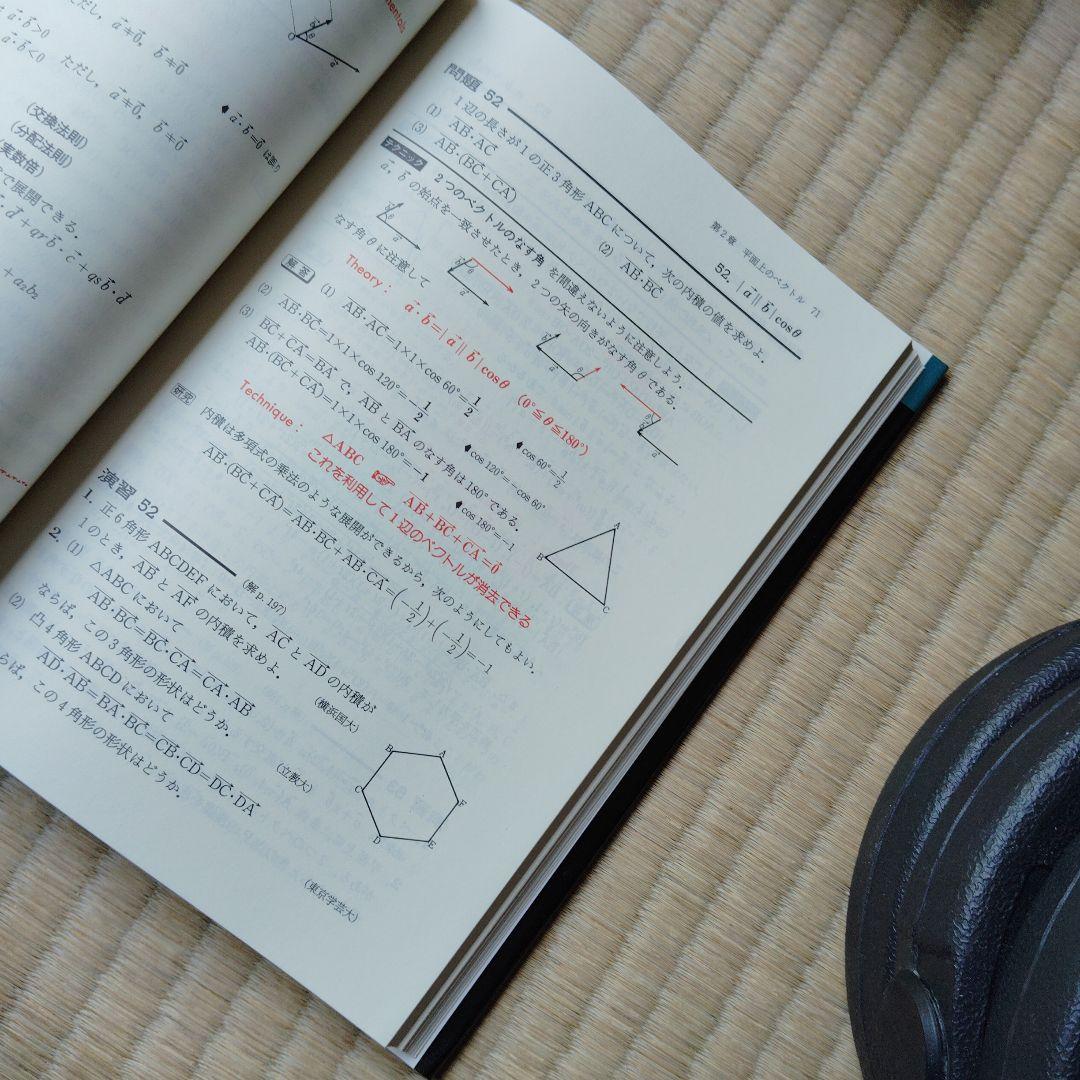 a⃗・b⃗>0
a⃗・b⃗<0 ただし, a⃗≠0⃗, b⃗≠0⃗
(交換法則)
(分配法則)
(実数倍)
で展開できる.
第2章 平面上のベクトル 71
問題 52
52. |a⃗||b⃗|cosθ
1辺の長さが1の正3角形ABCについて, 次の内積の値を求めよ.
(1) AB⃗・AC⃗
(2) AB⃗・BC⃗
(3) AB⃗・(BC⃗+CA⃗)
テクニック 2つのベクトルのなす角 を間違えないように注意しよう.
a⃗, b⃗ の始点を一致させたとき, 2つの矢の向きがなす角 θ である.
なす角 θ に注意して
Theory: a⃗・b⃗=|a⃗||b⃗|cosθ (0°≦θ≦180°)
解答 (1) AB⃗・AC⃗=1×1×cos60°=1/2 ♦cos60°=1/2
(2) AB⃗・BC⃗=1×1×cos120°=-1/2 ♦cos120°=-cos60°
(3) BC⃗+CA⃗=BA⃗ で, AB⃗ と BA⃗ のなす角は180°である.
AB⃗・(BC⃗+CA⃗)=1×1×cos180°=-1 ♦cos180°=-1
Technique: △ABC ☞ AB⃗+BC⃗+CA⃗=0⃗
これを利用して1辺のベクトルが消去できる
研究 内積は多項式の乗法のような展開ができるから, 次のようにしてもよい.
AB⃗・(BC⃗+CA⃗)=AB⃗・BC⃗+AB⃗・CA⃗=(-1/2)+(-1/2)=-1
A
B
C
演習 52 (解p.197)
1. 正6角形ABCDEFにおいて, AC⃗ と AD⃗ の内積が
1のとき, AB⃗ と AF⃗ の内積を求めよ.
(横浜国大)
2. (1) △ABCにおいて
AB⃗・BC⃗=BC⃗・CA⃗=CA⃗・AB⃗
ならば, この3角形の形状はどうか.
(立教大)
(2) 凸4角形ABCDにおいて
AD⃗・AB⃗=BA⃗・BC⃗=CB⃗・CD⃗=DC⃗・DA⃗
らば, この4角形の形状はどうか.
(東京学芸大)
A
B
C
D
E
F